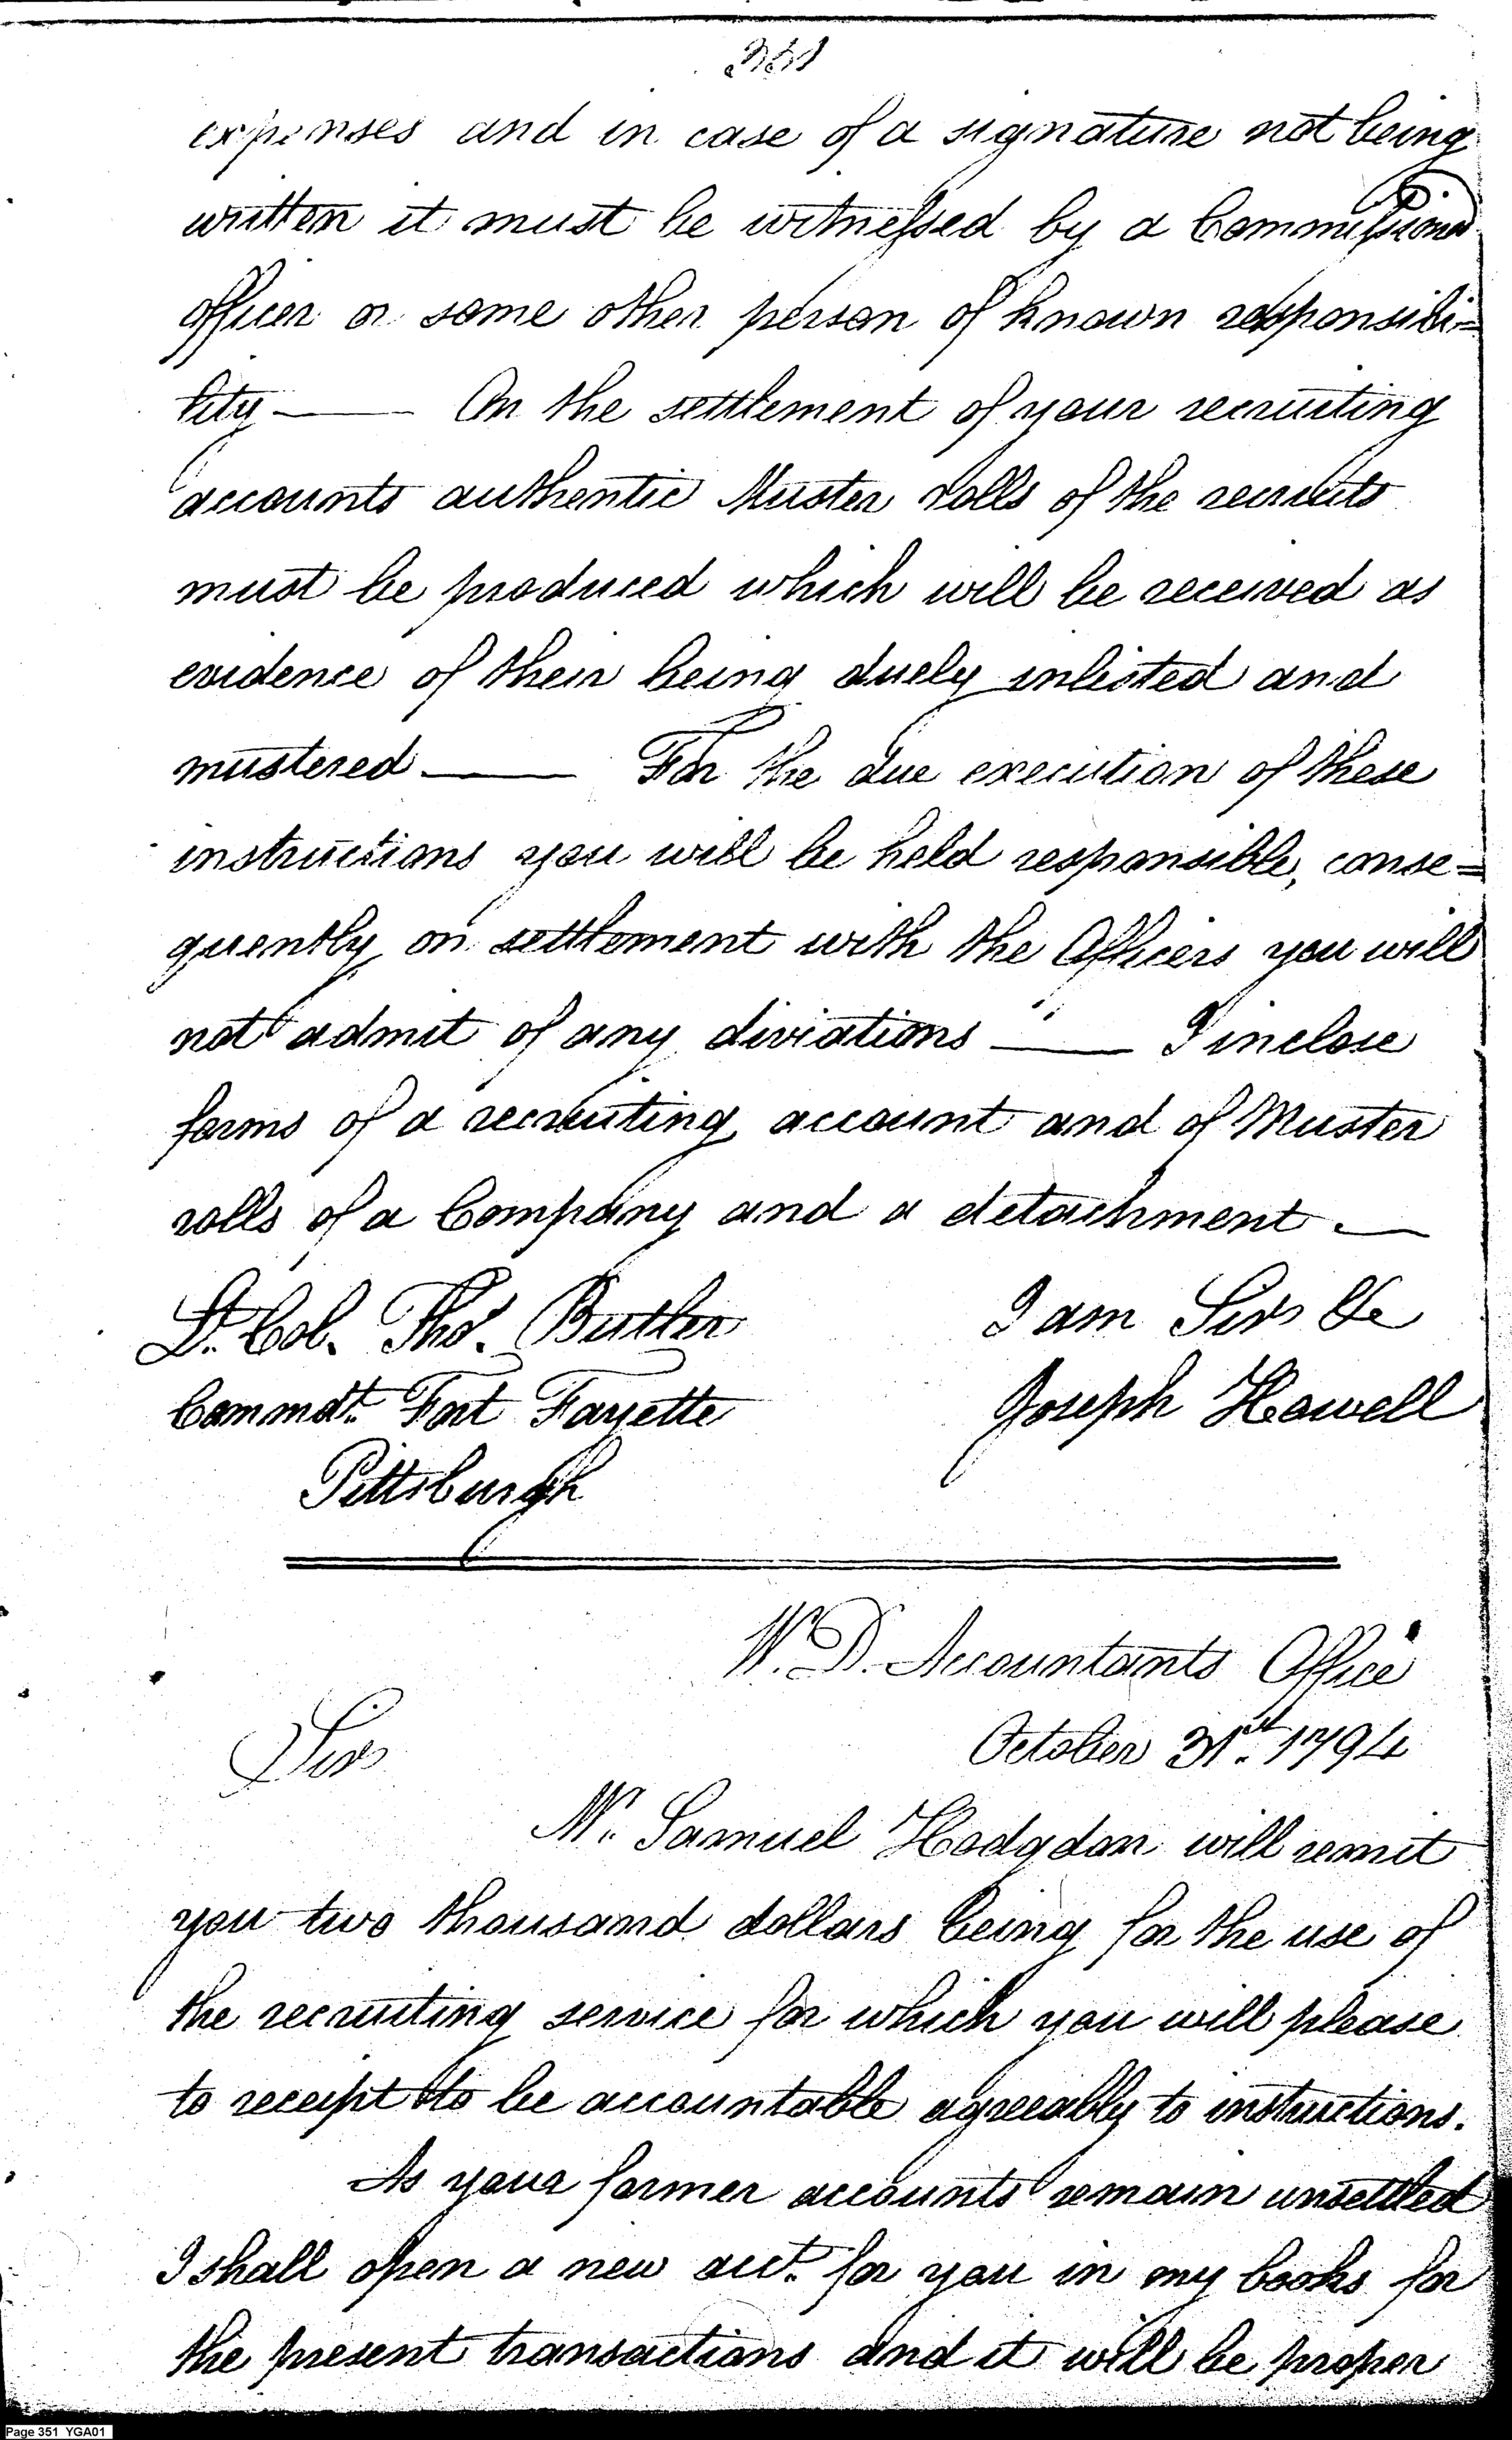 351
expenses and in case of a signature not being
written it must be witnessed by a Commissiond
officer or some other person of known responsibi=
lity —— On the settlement of your recruiting
accounts authentic Muster rolls of the recruits
must be produced which will be received as
evidence of their being duely inlisted and
mustered —— For the due execution of these
instructions you will be held responsible, conse=
quently on settlement with the Officers you will
not admit of any diviations —— I inclose
forms of a recruiting account and of Muster
rolls of a Company and a detachment —
Lt. Col. Thos. Butler I am Sir &c
Commdt. Fort Fayette Joseph Howell
Pittsburgh
W. D. Accountants Office
Sir October 31st. 1794
Mr. Samuel Hodgdon will remit
you two thousand dollars being for the use of
the recruiting service for which you will please
to receipt to be accountable agreeably to instructions.
As your former accounts remain unsettled
I shall open a new acct. for you in my books for
the present transactions and it will be proper
Page 351 YGA01